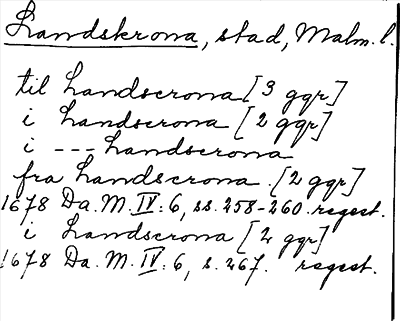 Landskrona, stad, Malm. l.
til Landscrona [3 ggr]
i Landscrona [2 ggr]
i --- Landscrona
fra Landscrona [2 ggr]
1678 Da. M. IV: 6, ss. 258-260. regest.
i Landscrona [2 ggr]
1678 Da. M. IV: 6, s. 267. regest.